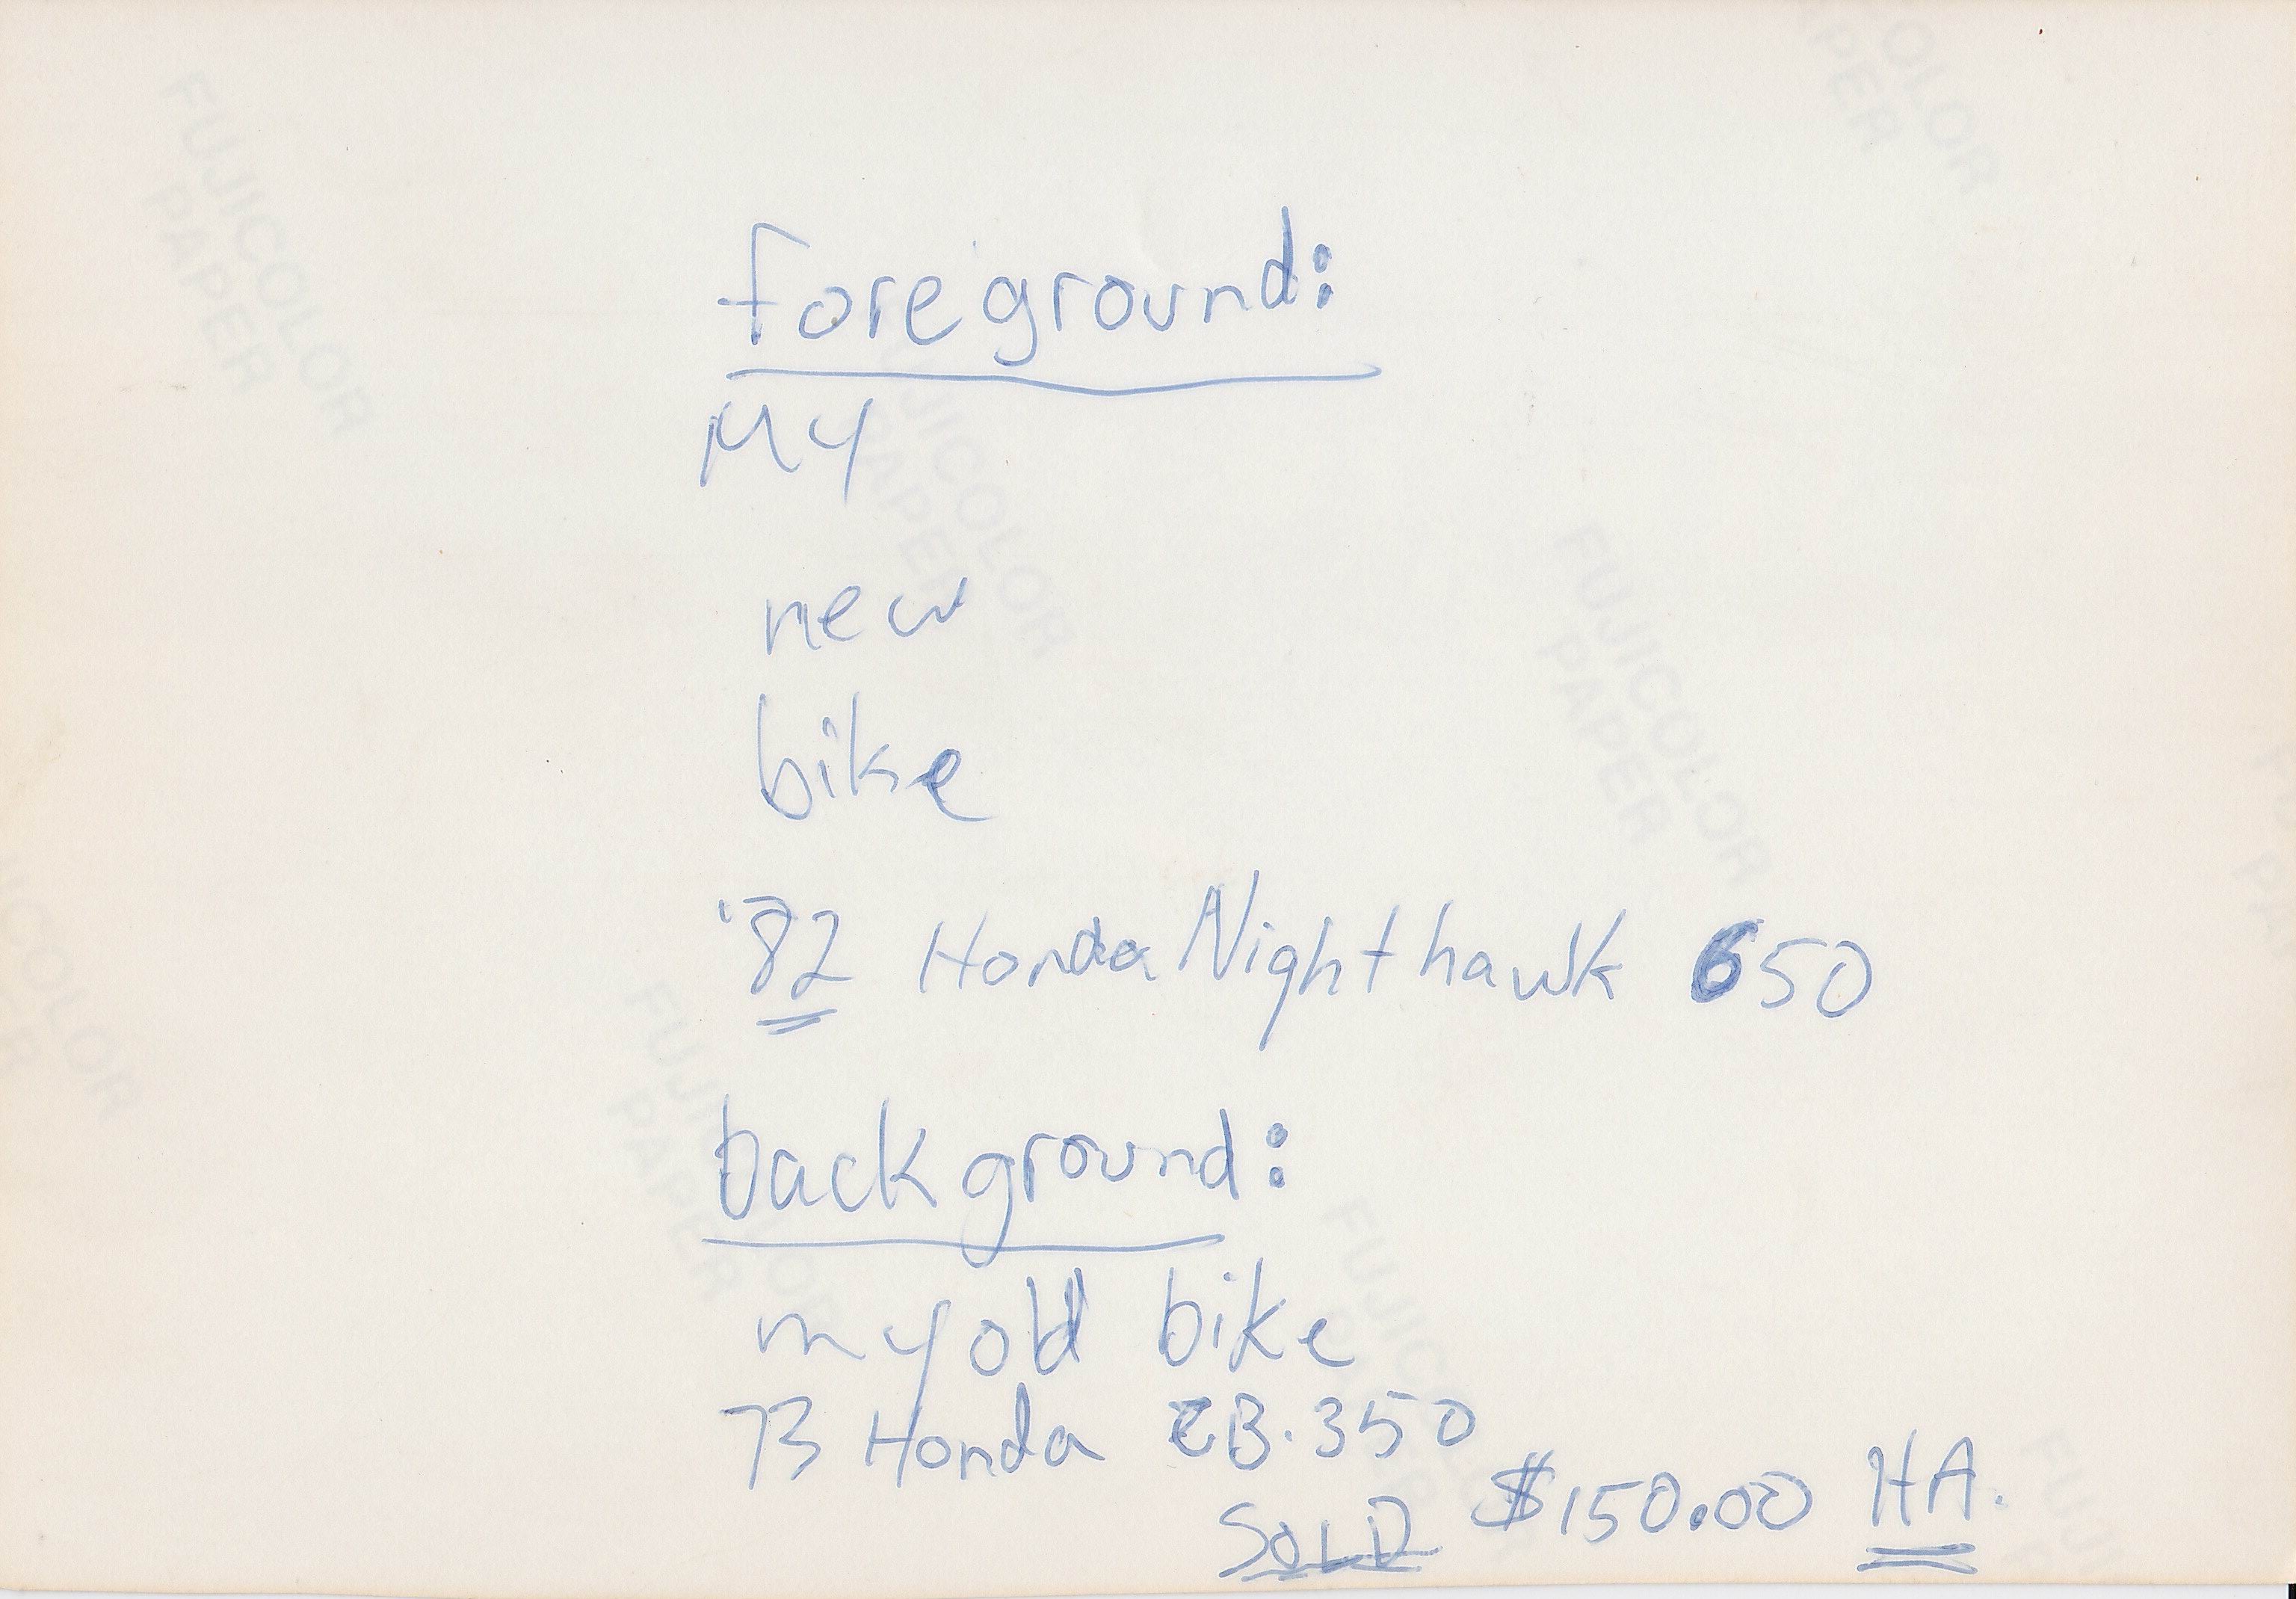 foreground:
My
new
bike
'82 Honda Nighthawk 650
background:
my old bike
73 Honda CB.350
SOLD $150.00 HA.
FUJICOLOR
PAPER
FUJICOLOR
PAPER
FUJICOLOR
PAPER
FUJICOLOR
PAPER